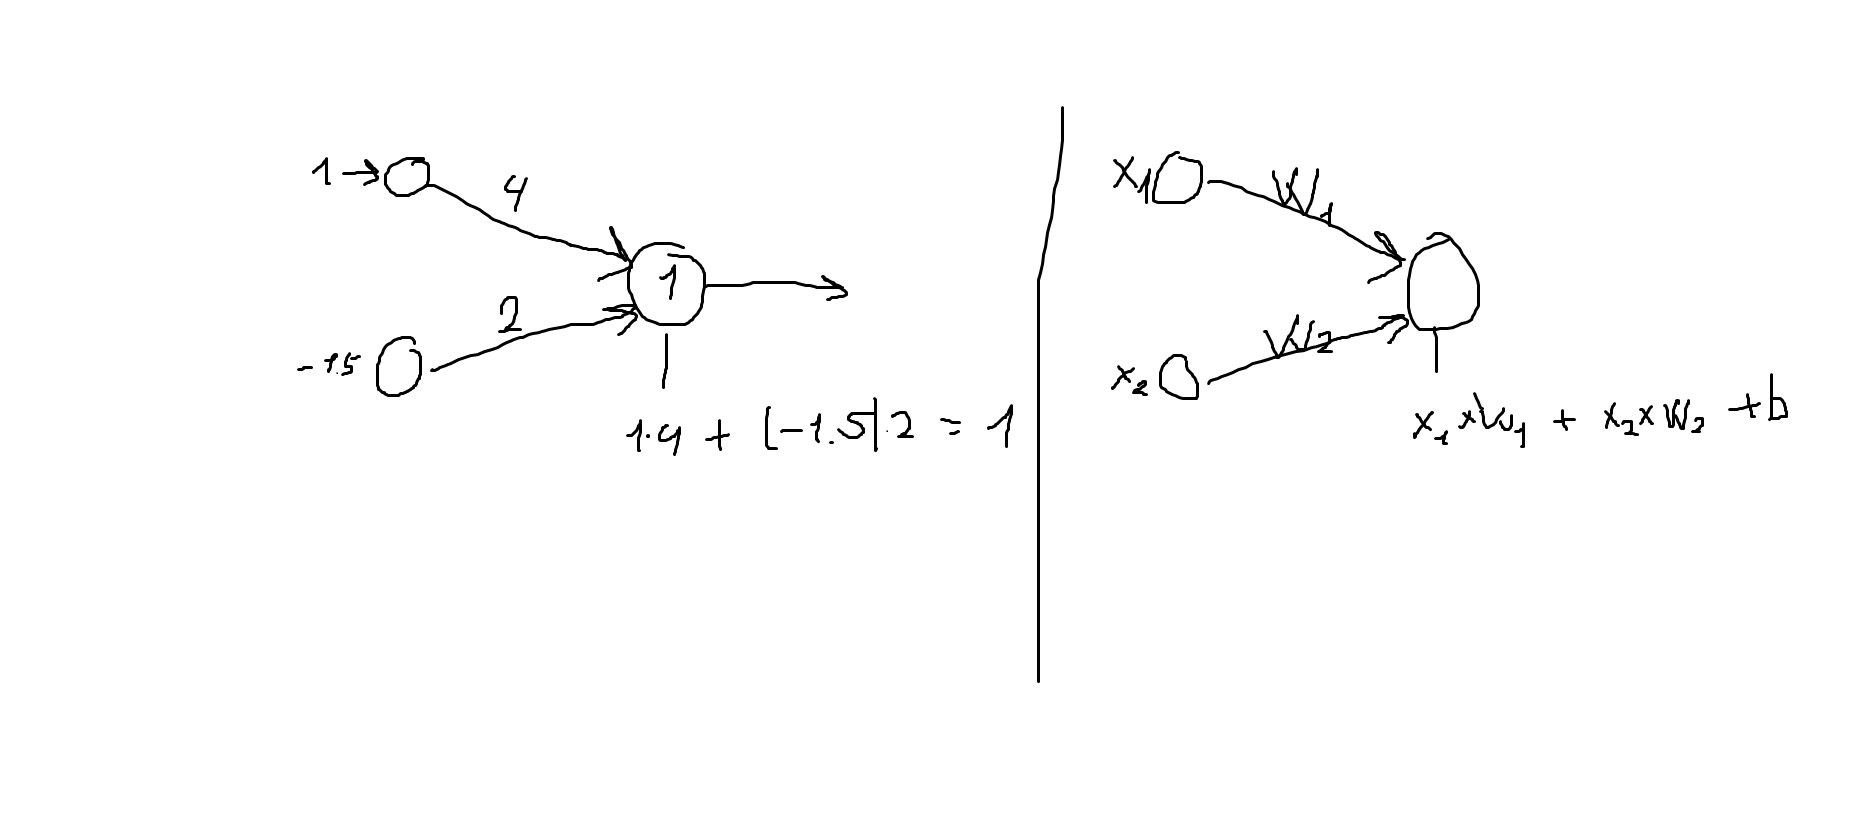 1
4
1
2
-1.5
1.4 + (-1.5).2 = 1
x1
W1
W2
x2
x1 x W1 + x2 x W2 + b